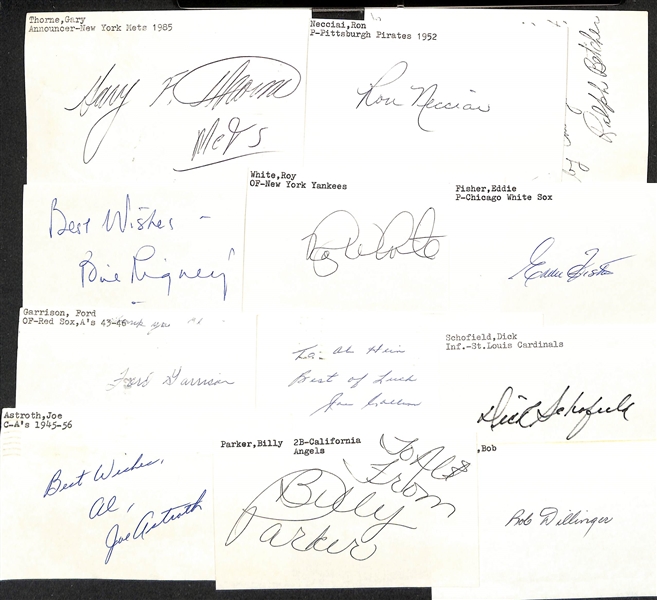 Thorne,Gary
Announcer-New York Mets 1985
Gary F. Thorne
Mets
Necciai,Ron
P-Pittsburgh Pirates 1952
Ron Necciai
Ralph
Best Wishes -
Bill Rigney
White,Roy
OF-New York Yankees
Roy White
Fisher,Eddie
P-Chicago White Sox
Eddie Fisher
Garrison, Ford
OF-Red Sox,A's 43-46
Ford Garrison
Best of Luck
Schofield,Dick
Inf.-St.Louis Cardinals
Dick Schofield
Astroth,Joe
C-A's 1945-56
Best Wishes,
Al,
Joe Astroth
Parker,Billy 2B-California
Angels
To Al
From
Billy
Parker
,Bob
Bob Dillinger